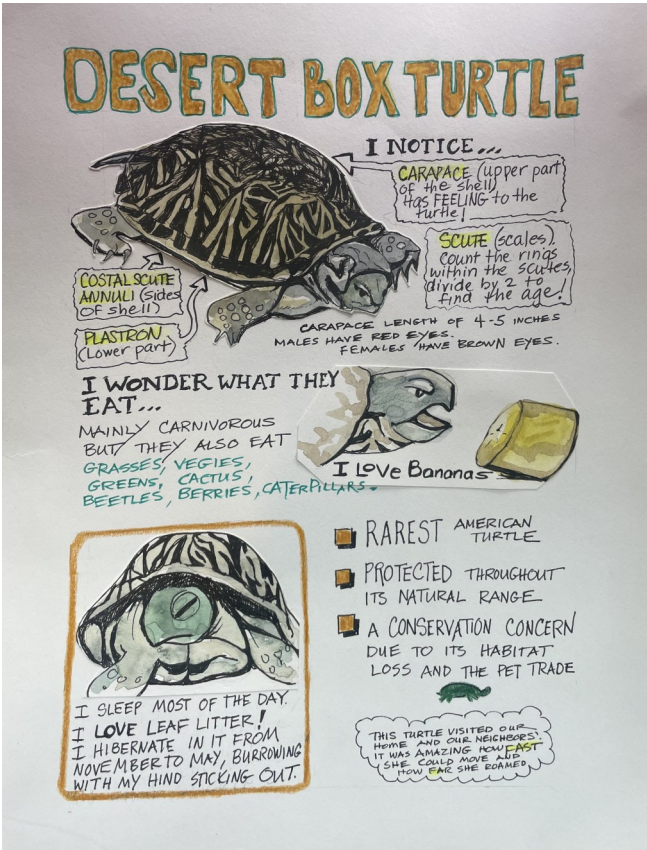 DESERT BOX TURTLE
I NOTICE...
CARAPACE (upper part
of the shell)
Has FEELING to the
turtle!
SCUTE (scales).
Count the rings
within the scutes,
divide by 2 to
find the age!
COSTAL SCUTE
ANNULI (sides
OF shell)
PLASTRON
(Lower part)
CARAPACE LENGTH OF 4-5 INCHES
MALES HAVE RED EYES.
FEMALES HAVE BROWN EYES.
I WONDER WHAT THEY
EAT...
MAINLY CARNIVOROUS
BUT THEY ALSO EAT
GRASSES, VEGIES,
GREENS, CACTUS,
BEETLES, BERRIES, CATERPILLARS.
I Love Bananas
RAREST AMERICAN
TURTLE
PROTECTED THROUGHOUT
ITS NATURAL RANGE
A CONSERVATION CONCERN
DUE TO ITS HABITAT
LOSS AND THE PET TRADE
I SLEEP MOST OF THE DAY.
I LOVE LEAF LITTER!
I HIBERNATE IN IT FROM
NOVEMBER TO MAY, BURROWING
WITH MY HIND STICKING OUT.
THIS TURTLE VISITED OUR
HOME AND OUR NEIGHBORS'.
IT WAS AMAZING HOW FAST
SHE COULD MOVE AND
HOW FAR SHE ROAMED